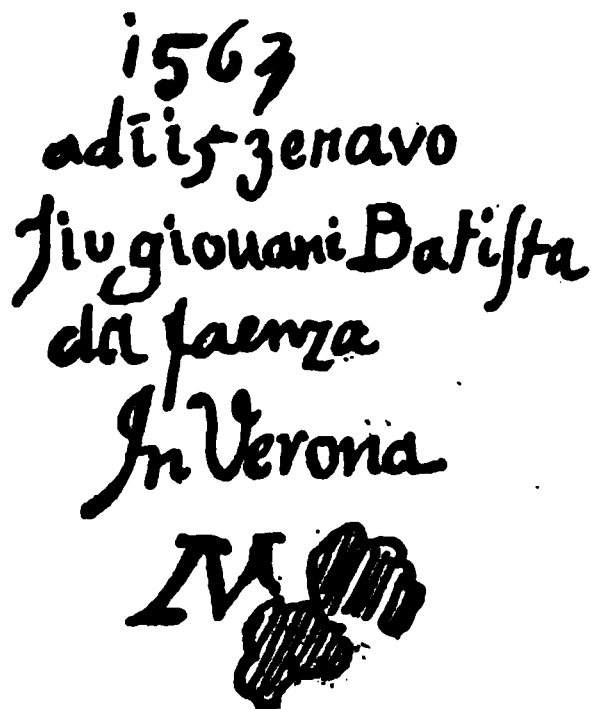 1563
adi 15 zenavo
Jiu giouani Batista
da faenza
In Verona
M